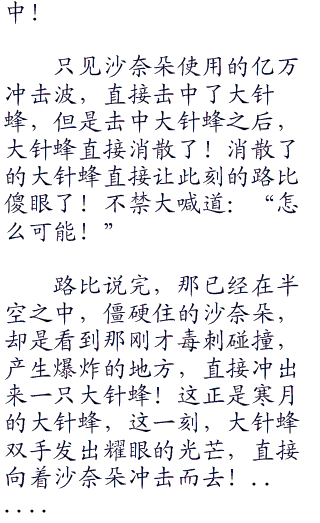 中！
　　只见沙奈朵使用的亿万
冲击波，直接击中了大针
蜂，但是击中大针蜂之后，
大针蜂直接消散了！消散了
的大针蜂直接让此刻的路比
傻眼了！不禁大喊道：“怎
么可能！”
　　路比说完，那已经在半
空之中，僵硬住的沙奈朵，
却是看到那刚才毒刺碰撞，
产生爆炸的地方，直接冲出
来一只大针蜂！这正是寒月
的大针蜂，这一刻，大针蜂
双手发出耀眼的光芒，直接
向着沙奈朵冲击而去！..
....